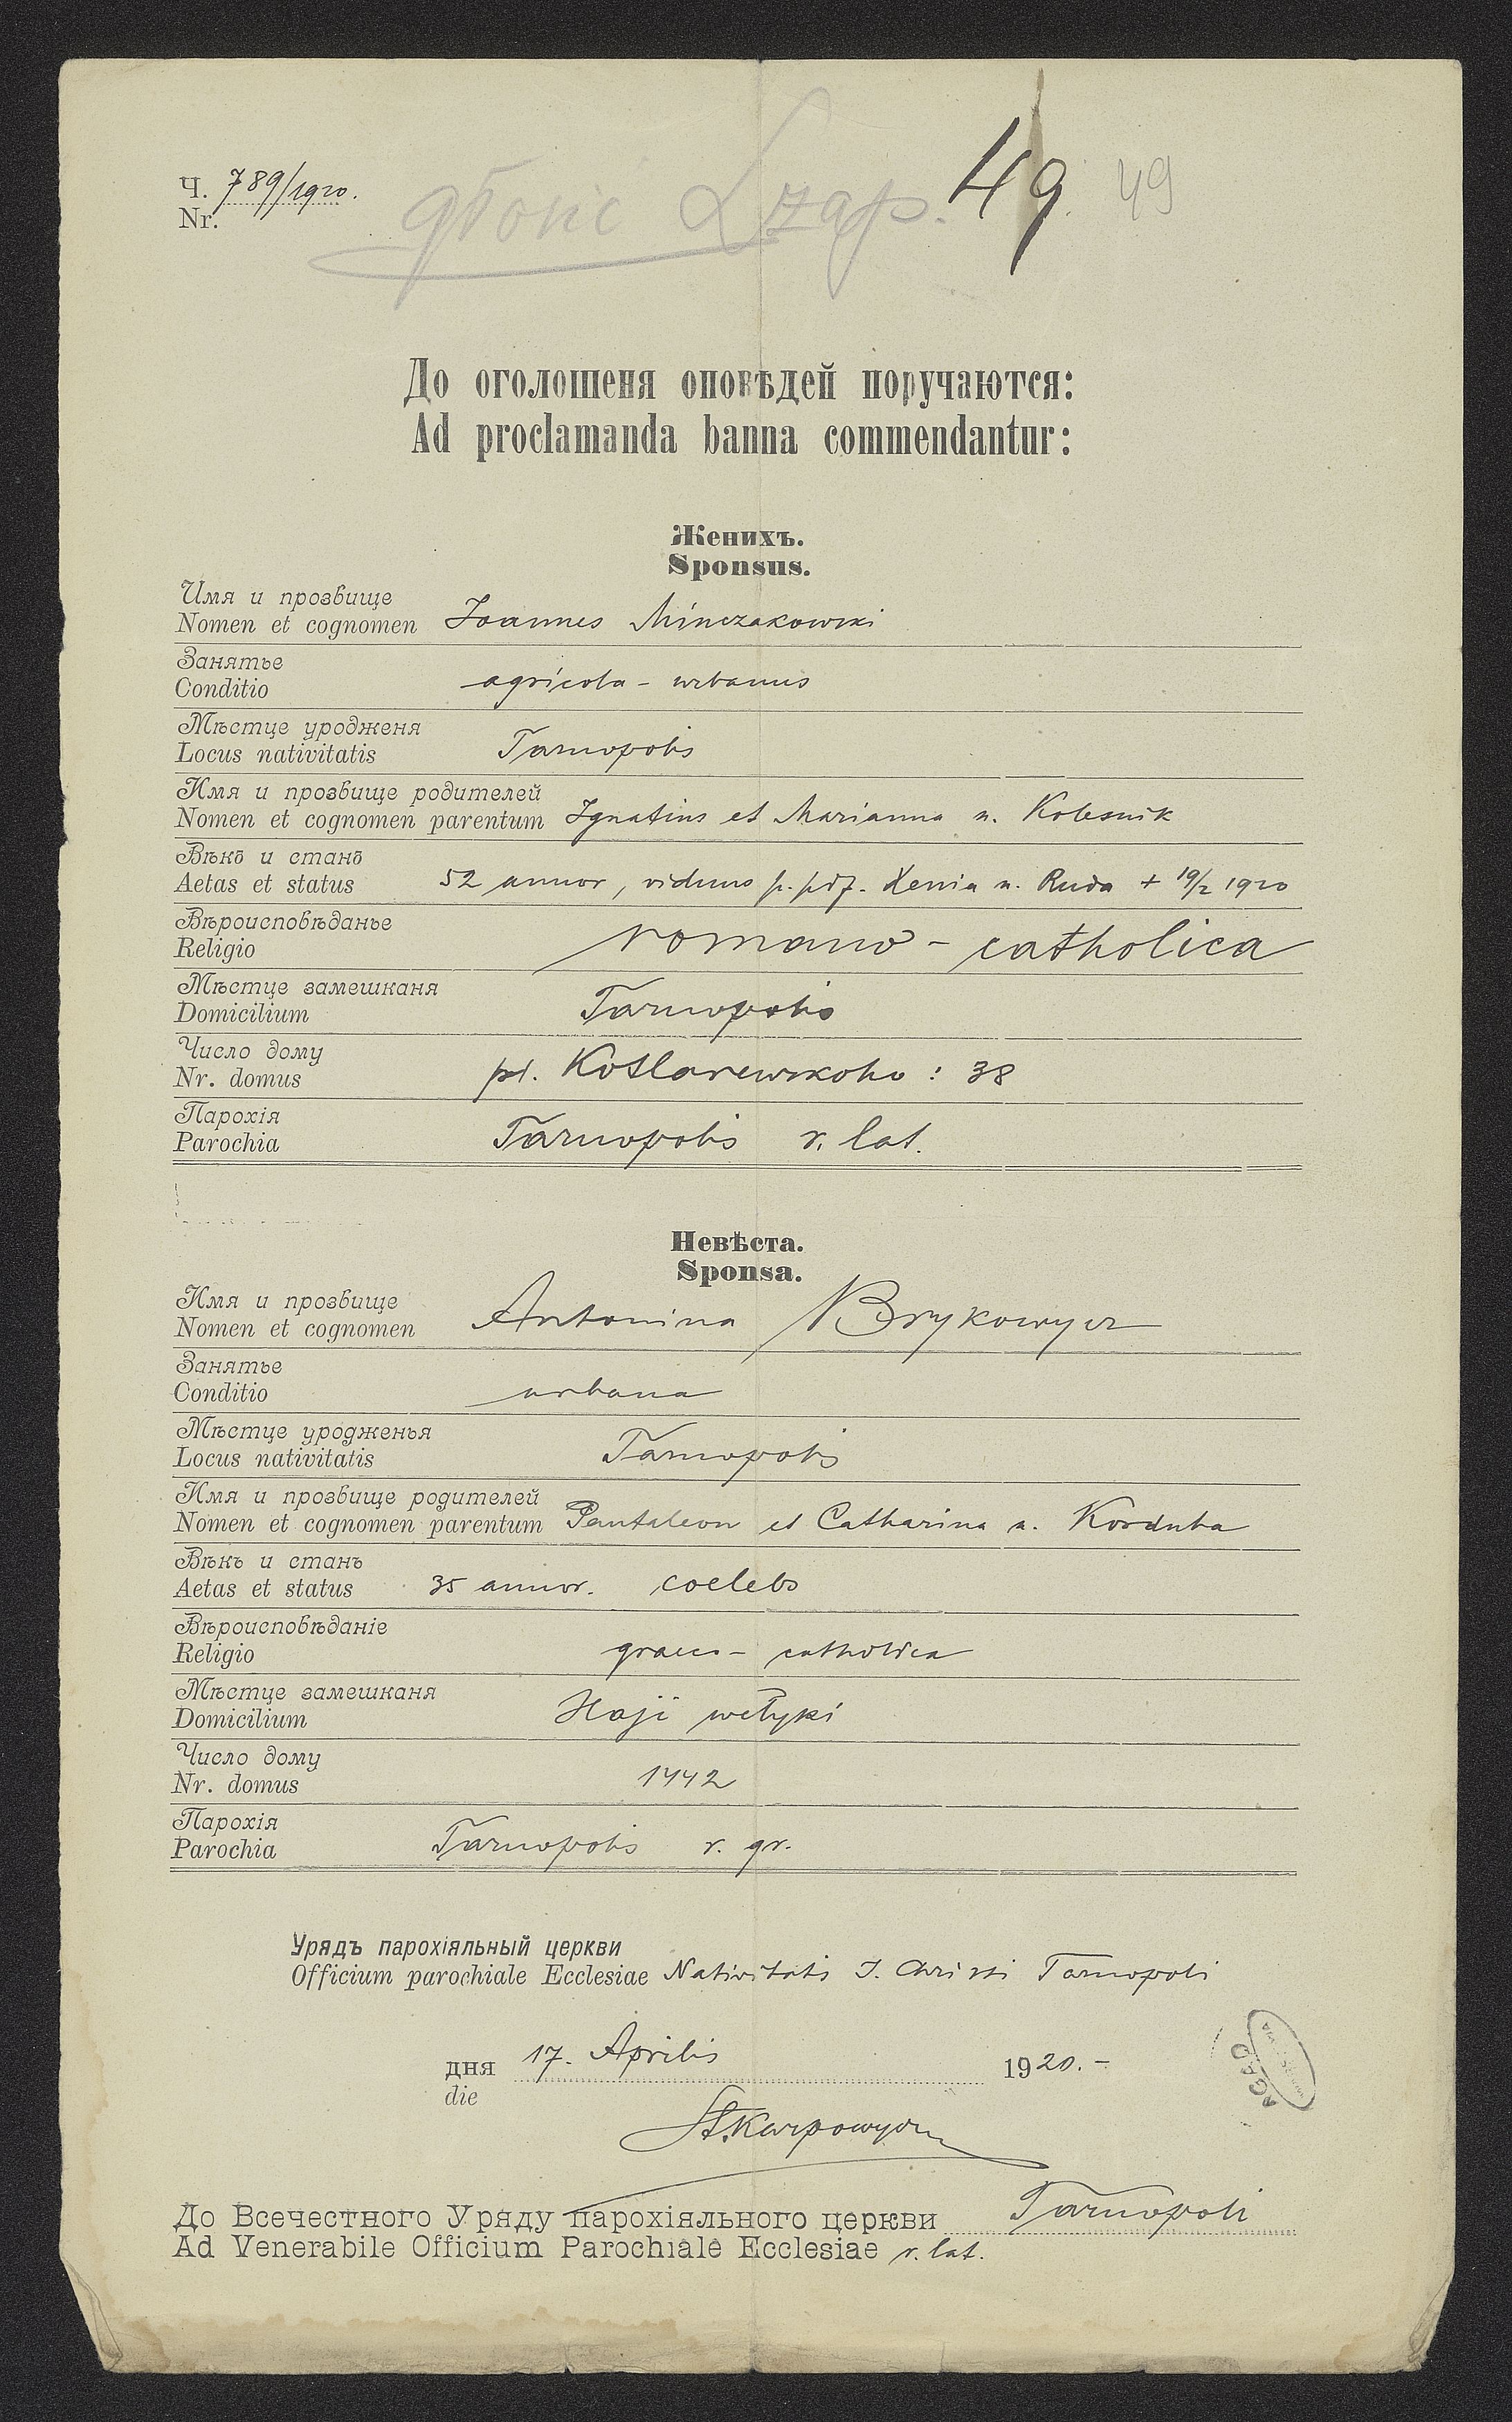 Ч. 789/1920.
Nr.
49. 49
До оголошеня оповѣдей поручаются:
Ad proclamanda banna commendantur:
Женихъ.
Sponsus.
Имя и прозвище
Nomen et cognomen Joannes Minczakowski
Занятье
Conditio agricola - urbanus
Мѣстце уродженя
Locus nativitatis Tarnopolis
Имя и прозвище родителей
Nomen et cognomen parentum Ignatius et Marianna n. Kolesnik
Вѣкъ и станъ
Aetas et status 52 annor, viduus p. pdf. Xenia n. Ruda + 19/2 1920
Вѣроисповѣданье
Religio romano - catholica
Мѣстце замешканя
Domicilium Tarnopolis
Число дому
Nr. domus pl. Kotlarewskoho : 38
Парохія
Parochia Tarnopolis r. lat.
Невѣста.
Sponsa.
Имя и прозвище
Nomen et cognomen Antonina Brykowycz
Занятье
Conditio urbana
Мѣстце уродженья
Locus nativitatis Tarnopolis
Имя и прозвище родителей
Nomen et cognomen parentum Pantaleon et Catharina n. Korduba
Вѣкъ и станъ
Aetas et status 35 annor. coelebs
Вѣроисповѣданіе
Religio graeco - catholica
Мѣстце замешканя
Domicilium Haji wełyki
Число дому
Nr. domus 1442
Парохія
Parochia Tarnopolis r. gr.
Урядъ парохіяльный церкви
Officium parochiale Ecclesiae Nativitatis J. Christi Tarnopoli
дня 17. Aprilis 1920. -
die
St. Karpowycz
До Всечестного Уряду парохіяльного церкви Tarnopoli
Ad Venerabile Officium Parochiale Ecclesiae r. lat.
AGAD